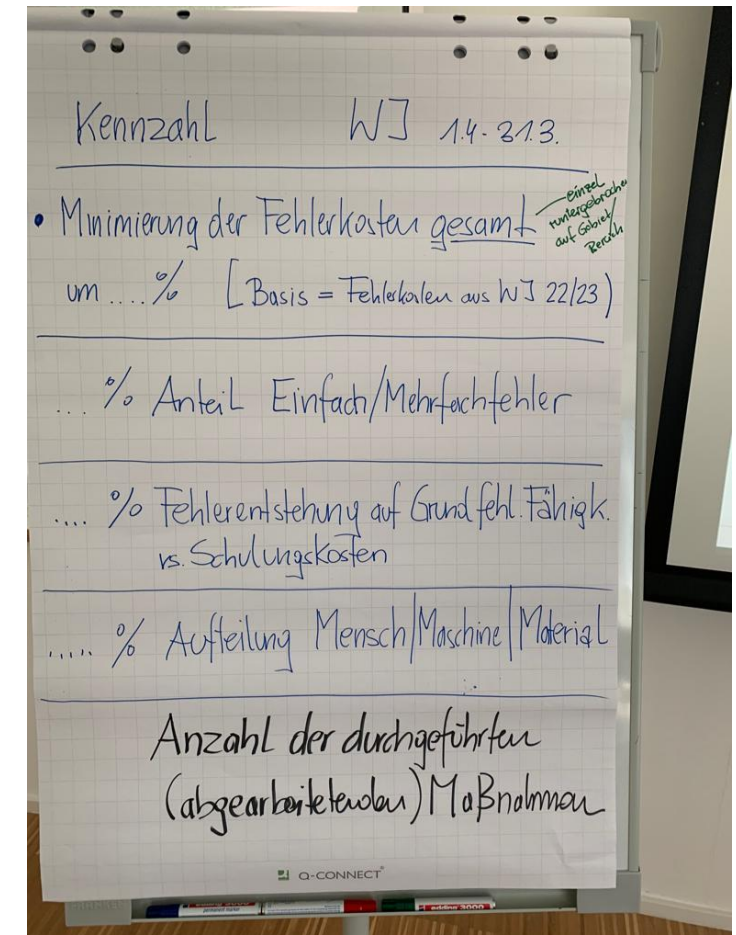 Kennzahl WJ 1.4. - 31.3.
• Minimierung der Fehlerkosten gesamt
einzel
runtergebrochen
auf Gebiet/
Bereich
um .... % [Basis = Fehlerkosten aus WJ 22/23)
... % Anteil Einfach/Mehrfachfehler
.... % Fehlerentstehung auf Grund fehl. Fähigk.
vs. Schulungskosten
..... % Aufteilung Mensch/Maschine/Material
Anzahl der durchgeführten
(abgearbeitetenden) Maßnahmen
Q-CONNECT
edding 3000